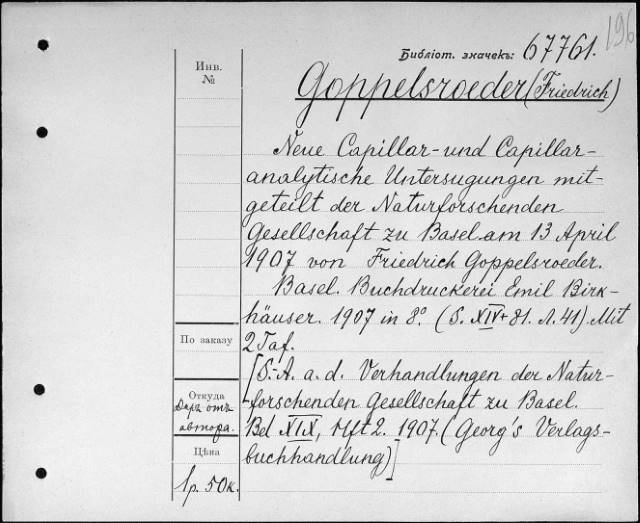 196
Библіот. значекъ: 67761.
Инв.
№
Goppelsroeder (Friedrich)
Neue Capillar- und Capillar-
analytische Untersugungen mit-
geteilt der Naturforschenden
Gesellschaft zu Basel am 13 April
1907 von Friedrich Goppelsroeder.
Basel. Buchdruckerei Emil Birk-
häuser. 1907 in 8° (S. XIV+81. Л. 41) Mit
По заказу
2 Taf.
[S.-A. a. d. Verhandlungen der Natur-
Откуда
Даръ отъ
forschenden Gesellschaft zu Basel.
автора.
Bd XIX, Hft 2. 1907. (Georg's Verlags-
Цѣна
buchhandlung)]
1р. 50к.